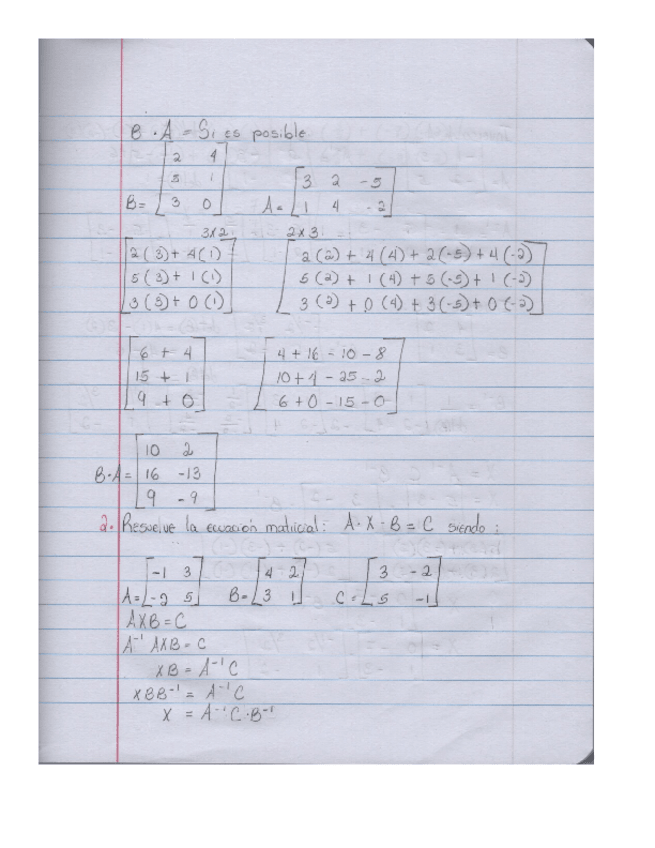 B · A = Si es posible
B = [2 4; 5 1; 3 0] A = [3 2 -5; 1 4 -2]
3x2 2x3
[2(3)+4(1) [2(2)+4(4)+2(-5)+4(-2)
5(3)+1(1) 5(2)+1(4)+5(-5)+1(-2)
3(3)+0(1)] 3(2)+0(4)+3(-5)+0(-2)]
[6 + 4 [4+16-10-8
15 + 1 10+4-25-2
9 + 0] 6+0-15-0]
B·A = [10 2
16 -13
9 -9]
2. Resuelve la ecuación matricial: A·X·B = C siendo:
A = [-1 3; -2 5] B = [4 2; 3 1] C = [3 -2; 5 -1]
AXB = C
A⁻¹ AXB = C
XB = A⁻¹C
XBB⁻¹ = A⁻¹C
X = A⁻¹C·B⁻¹